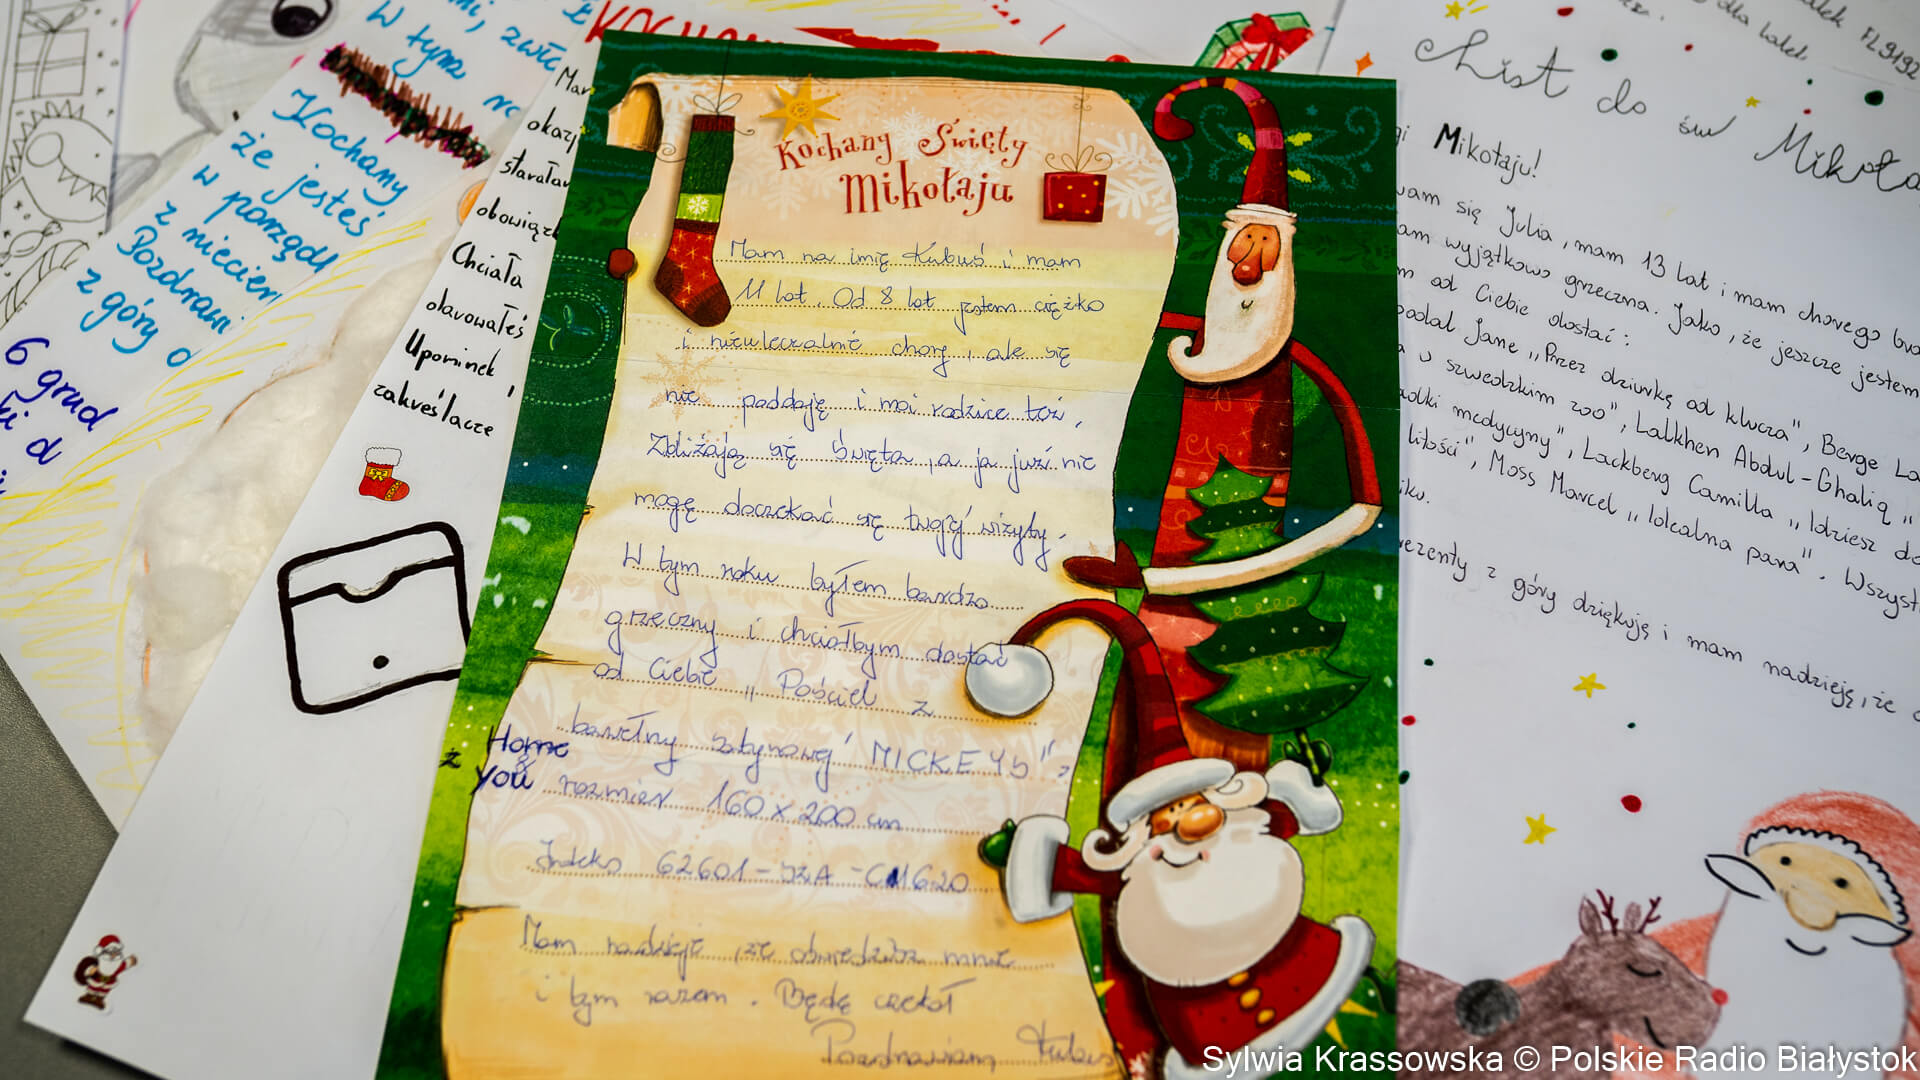 KOCHAN
Kochany Święty
Mikołaju
Mam na imię Kubuś i mam
11 lat. Od 8 lat jestem ciężko
i nieuleczalnie chory, ale się
nie poddaję i moi rodzice też,
Zbliżają się Święta, a ja już nie
mogę doczekać się twojej wizyty.
W tym roku byłem bardzo
grzeczny i chciałbym dostać
od Ciebie „ Pościel z
bawełny satynowej MICKEY
z Home
& you rozmiar 160 x 200 cm
Indeks 62601-
Mam nadzieję, że odwiedzisz mnie
i tym razem. Będę czekał
Pozdrawiam Kubuś
W tym
Kochany
że jesteś
w porządk
z niecier
Pozdrawi
z góry d
6 grud
Mar
okazj
starałan
obowiązk
Chciała
obarowałeś
Upominek,
zakreślacze
FL9192
dla lalek
List do św Mikoła
Mikołaju!
wam się Julia, mam 13 lat i mam chorego bra
am wyjątkowo grzeczna. Jako, że jeszcze jestem
m od Ciebie dostać:
oodal Jane „Przez dziurkę od klucza", Berge La
a w szwedzkim zoo", Lalkhen Abdul-Ghaliq „
adki medycyny", Lackberg Camilla „Idziesz do
litości", Moss Marcel „Idealna para". Wszyst
iku.
rezenty z góry dziękuję i mam nadzieję, że
Sylwia Krassowska © Polskie Radio Białystok